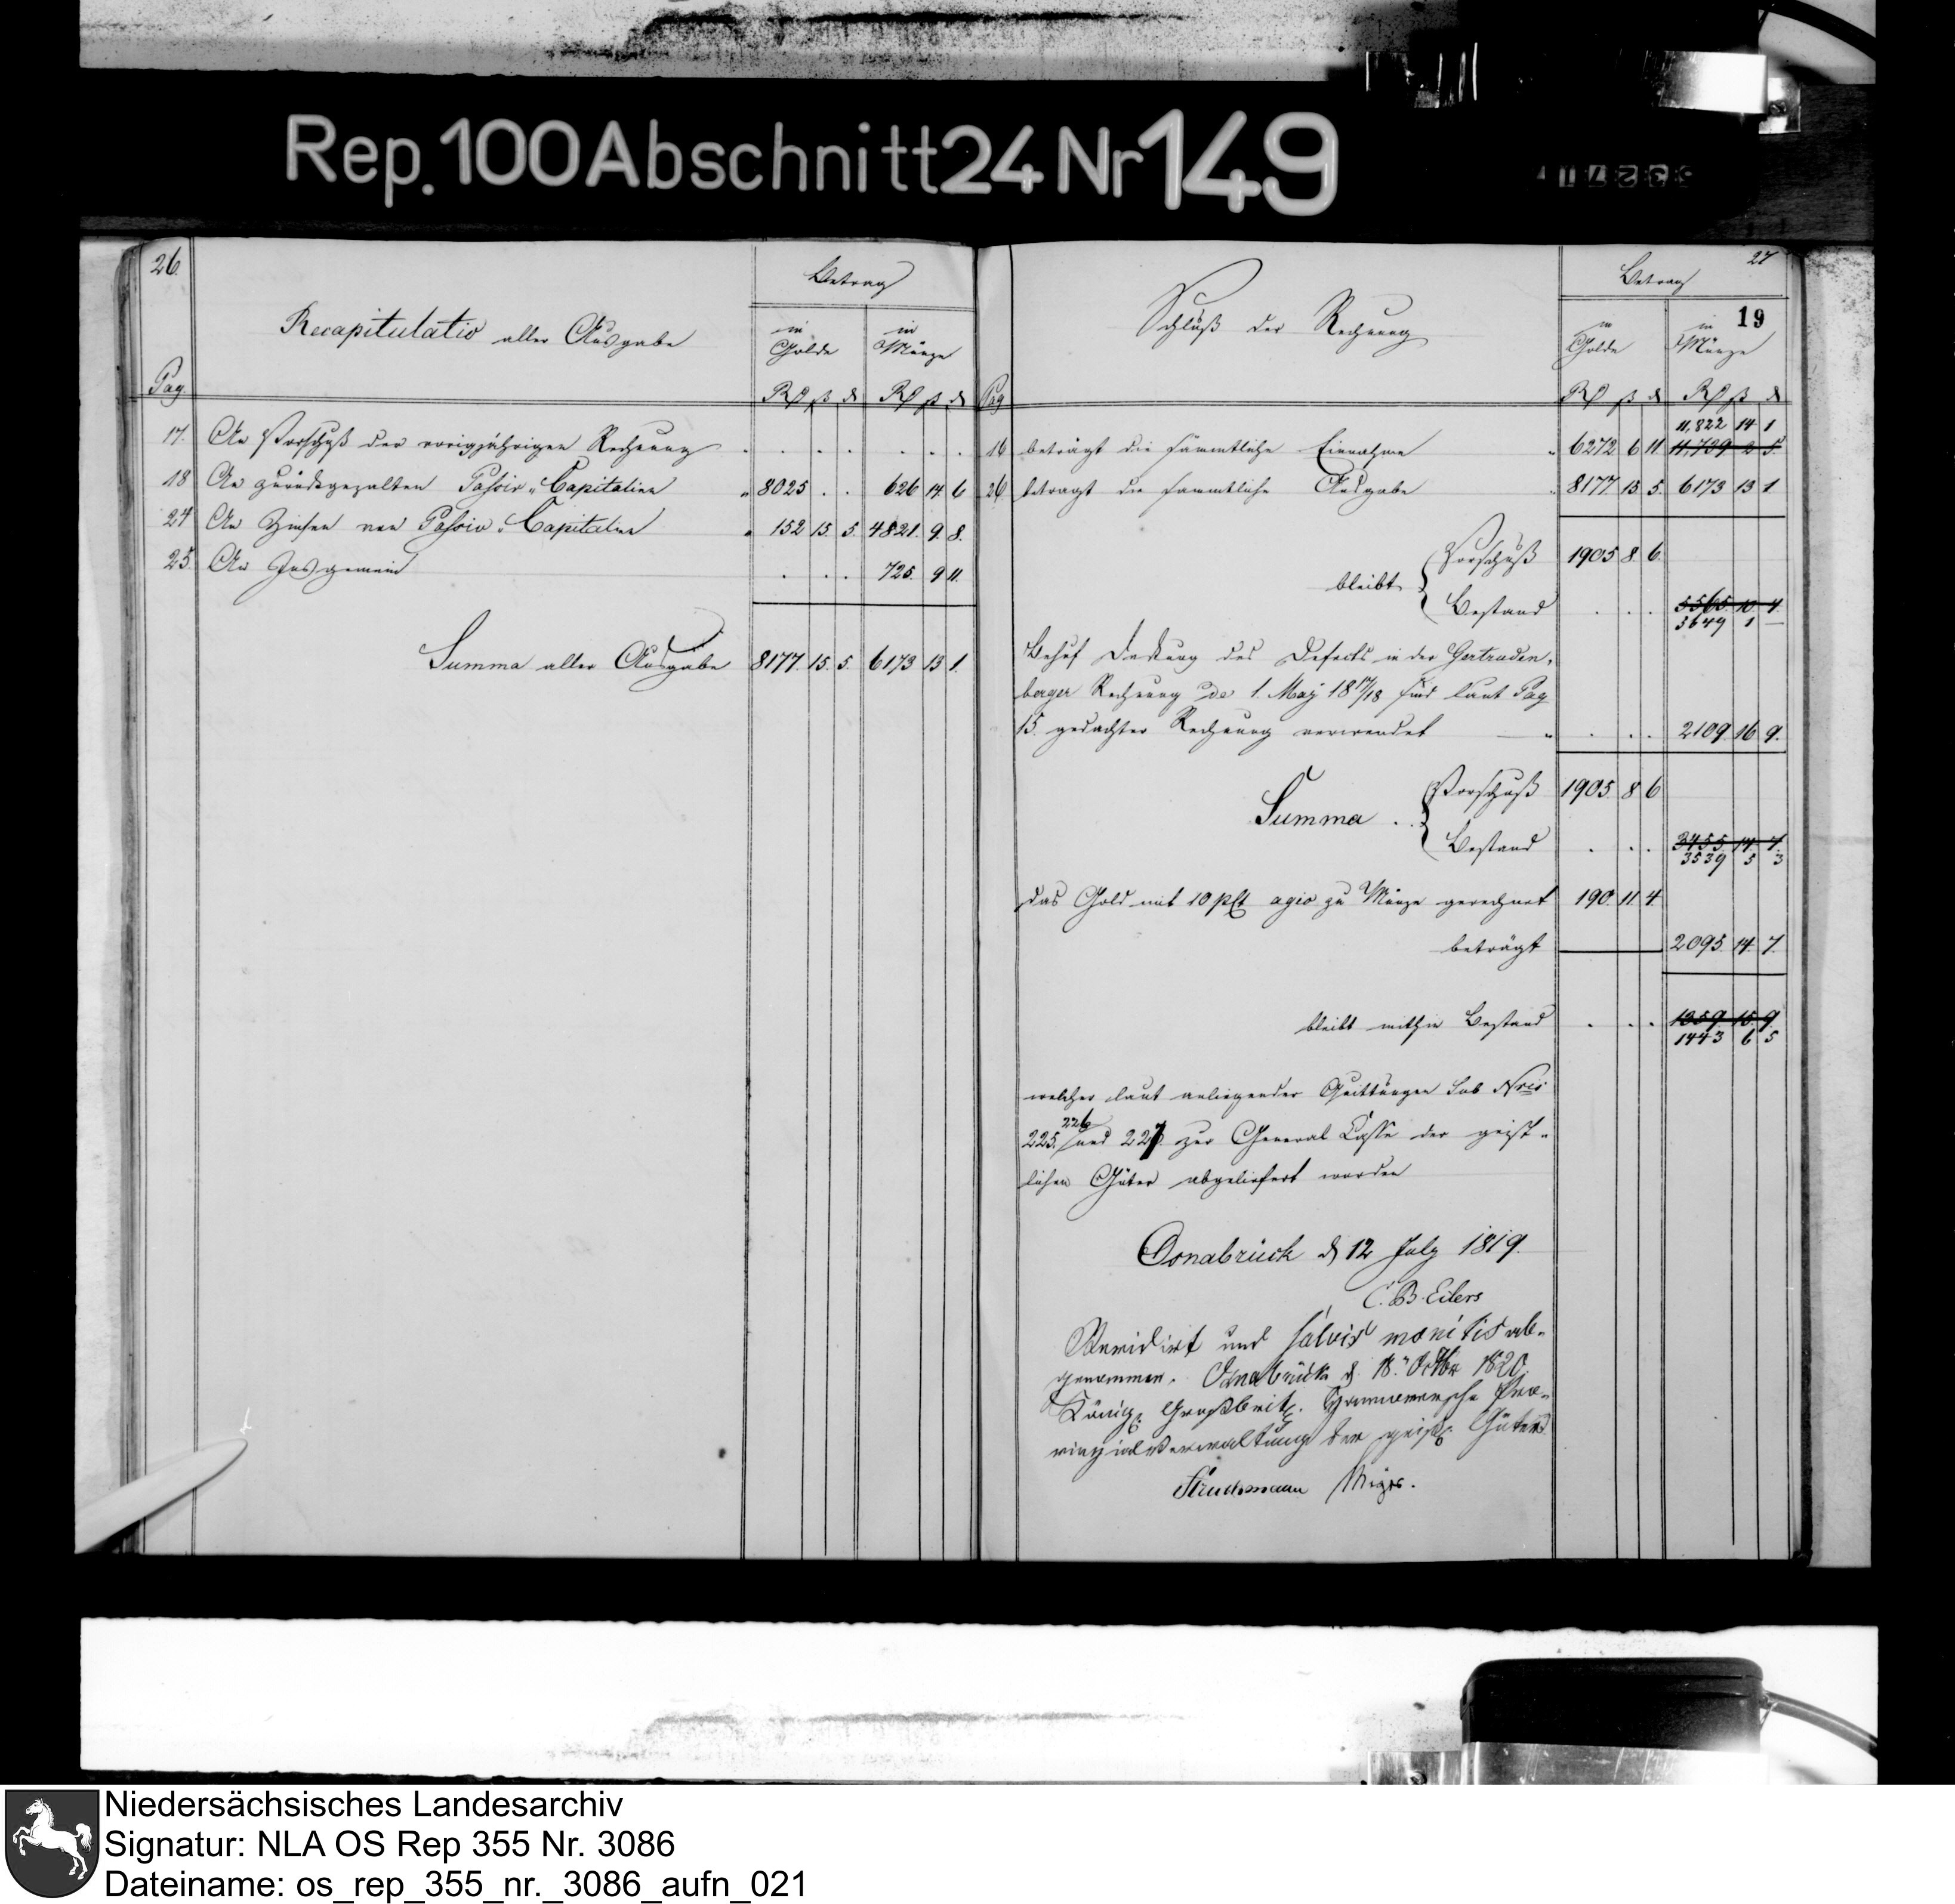 Rep. 100 Abschnitt 24 Nr 149
26.
Betrag
Recapitulatio aller Ausgabe
in Golde
in Münze
Pag.
Rθ ß d Rθ ß d
17. An Vorschuß der vorigjährigen Rechnung . . . . . .
18 An zurückgezalten Passiv-Capitalien " 8025 . . 626 14 6
24 An Zinsen von Passiv-Capitalien " 152 15. 5. 4821. 9. 8.
25. An Insgemein . . . 725. 9 11.
Summa aller Ausgabe 8177. 15. 5. 6173 13 1.
27
19
Betrag
Schluß der Rechnung
in Golde
in Münze
Pag
Rθ ß d Rθ ß d
11,822 14 1
16 beträgt die sämmtliche Einnahme " 6272 6 11 11,739 2 5.
26 beträgt die sämmtliche Ausgabe " 8177. 15. 5. 6173 13 1.
bleibt
Vorschuß 1905 8 6.
Bestand . . . 5565. 10. 4.
5649 1 —
Behuf Deckung des Defects in der Gertruden-
berger Rechnung de 1. May 18 17/18 sind laut Pag
15. gedachter Rechnung verwendet — " . . . 2109. 16 9.
Summa . .
Vorschuß 1905. 8 6
Bestand . . . 3455. 14. 7.
3539 5 3
das Gold mit 10 pCt agio zu Münze gerechnet 190. 11. 4.
beträgt 2095. 14. 7.
bleibt mithin Bestand . . . 1359. 15. 9.
1443 6 5
welcher laut anliegender Quittungen sub Nris
225. 226 und 227. zur General Casse der geist-
lichen Güter abgeliefert worden
Osnabrück d 12 July 1819.
C. B. Eilers
Revidirt und salvis monitis ab-
genommen. Osnabrück d. 18. Octbr 1820.
Königl. Großbrit. Hannoversche Pro-
vinzialverwaltung der geistl. Güter
Struckmann
Niedersächsisches Landesarchiv
Signatur: NLA OS Rep 355 Nr. 3086
Dateiname: os_rep_355_nr._3086_aufn_021